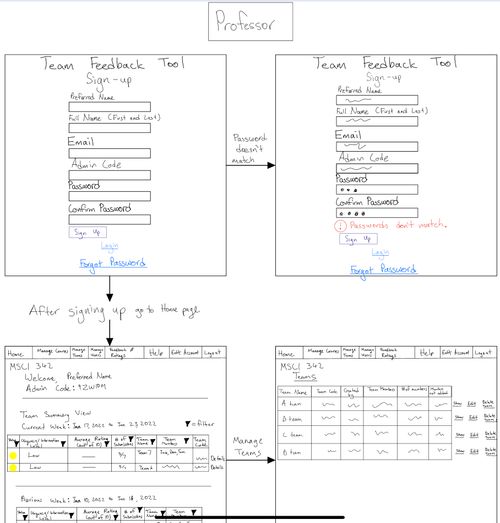 Professor
Team Feedback Tool
Sign-up
Preferred Name
Full Name (First and Last)
Email
Admin Code
Password
Confirm Password
Sign Up
Login
Forgot Password
Password doesn't match
Team Feedback Tool
Sign-up
Preferred Name
Full Name (First and Last)
Email
Admin Code
Password
Confirm Password
! Passwords don't match.
Sign Up
Login
Forgot Password
After signing up go to Home page
Home Manage Courses Manage Teams Manage Users Feedback & Ratings Help Edit Account Logout
MSCI 342
Welcome, Preferred Name
Admin Code:
Team Summary View
Current Week: Jan 17, 2022 to Jan 23, 2022
= filter
Average Rating (out of 10) # of Submissions Team Name Team Members Team Code
Low Team Details
Low Team Details
Previous Week: Jan 10, 2022 to Jan 16, 2022
Average Rating (out of 10) # of Submissions Team Name Team Members Team Code
Manage Teams
Home Manage Courses Manage Teams Manage Users Feedback & Ratings Help Edit Account Logout
MSCI 342
Teams
Team Name Team Code Created by Team Members # of members Members not added
A team Show Edit Delete Team
B team Show Edit Delete Team
C team Show Edit Delete Team
D team Show Edit Delete Team